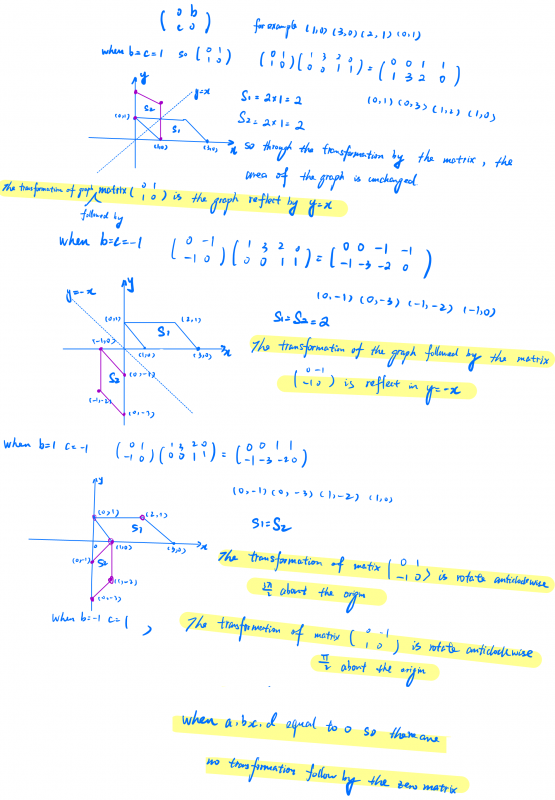 (0 b
c 0)
for example (1,0) (3,0) (2,1) (0,1)
when b=c=1 so (0 1
1 0)
(0 1
1 0) (1 3 2 0
0 0 1 1) = (0 0 1 1
1 3 2 0)
(0,1) (0,3) (1,2) (1,0)
y
y=x
S2
(0,1)
S1
(1,0)
(3,0)
x
S1 = 2×1 = 2
S2 = 2×1 = 2
so through the transformation by the matrix, the
area of the graph is unchanged
The transformation of graph matrix (0 1
1 0) is the graph reflect by y=x
followed by
when b=c=-1
(0 -1
-1 0) (1 3 2 0
0 0 1 1) = (0 0 -1 -1
-1 -3 -2 0)
(0,-1) (0,-3) (-1,-2) (-1,0)
y
y=-x
(0,1)
S1
(2,1)
(-1,0)
(1,0)
(3,0)
x
S2
(0,-1)
(-1,-2)
(0,-3)
S1=S2=2
The transformation of the graph followed by the matrix
(0 -1
-1 0) is reflect in y=-x
when b=1 c=-1
(0 1
-1 0) (1 3 2 0
0 0 1 1) = (0 0 1 1
-1 -3 -2 0)
(0,-1) (0,-3) (1,-2) (1,0)
y
(0,1)
(2,1)
S1
0
(1,0)
(3,0)
x
(0,-1)
S2
(1,-2)
(0,-3)
S1=S2
The transformation of matix (0 1
-1 0) is rotate anticlockwise
3π/2 about the origin
when b=-1 c=1 ,
The transformation of matrix (0 -1
1 0) is rotate anticlockwise
π/2 about the origin
when a,b,c,d equal to 0 so there are
no transformation follow by the zero matrix.